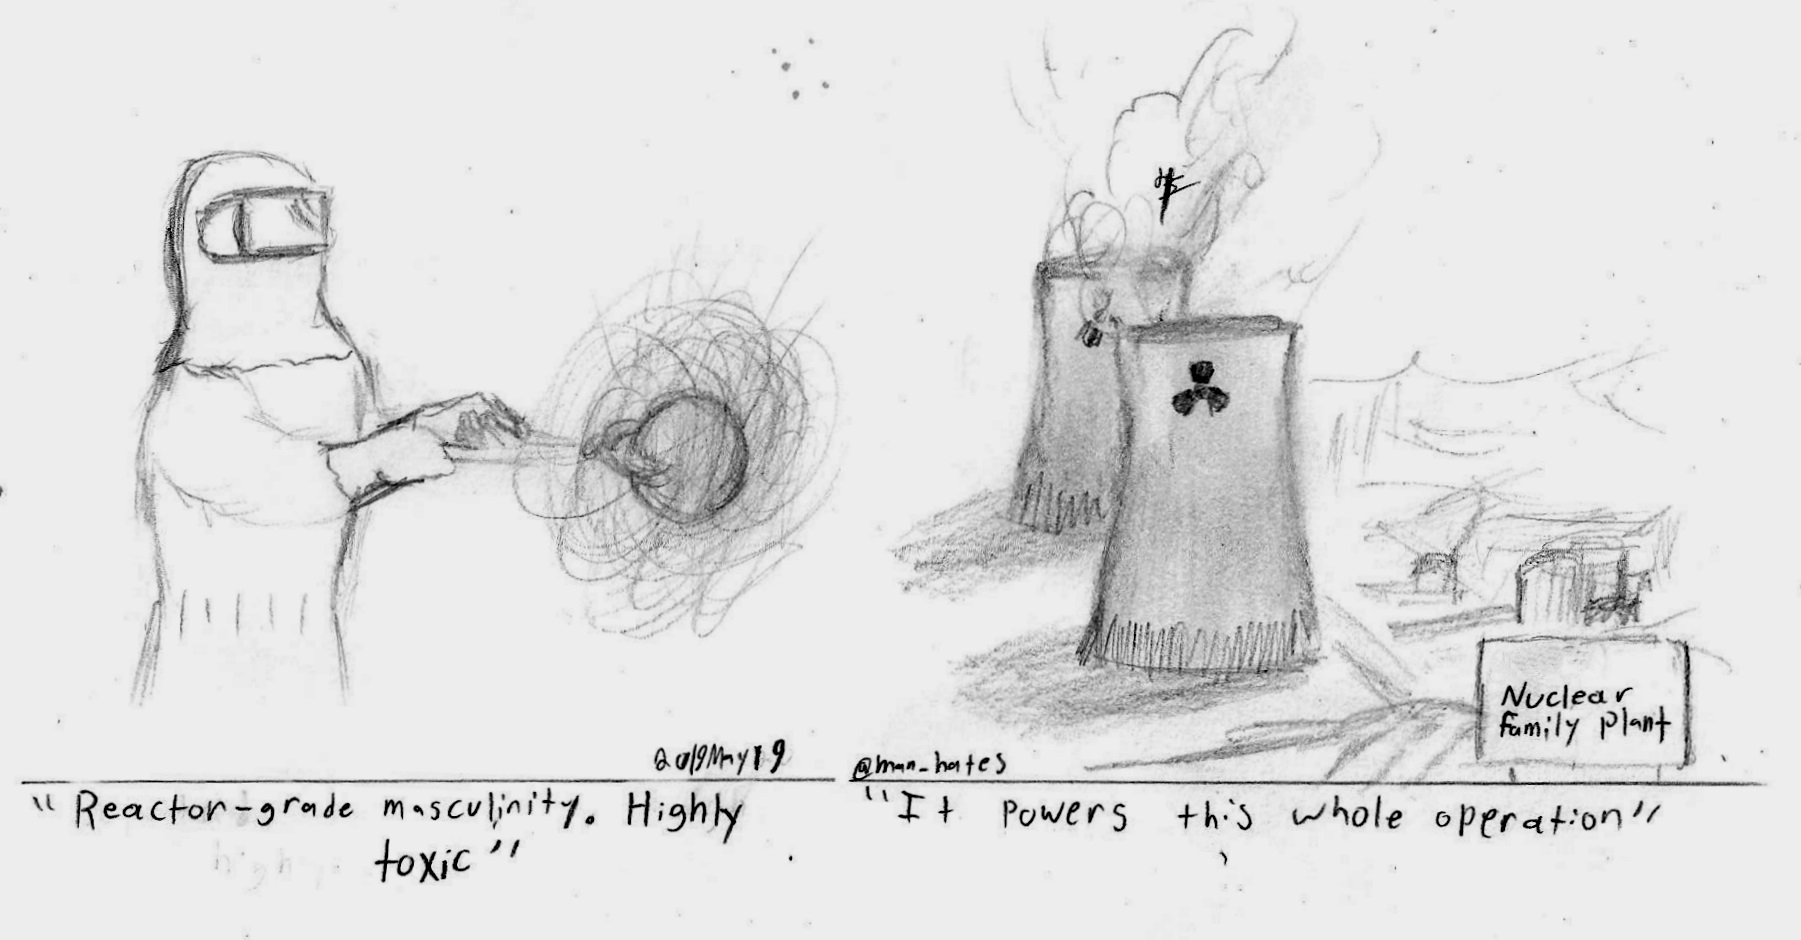 2019May19
"Reactor-grade masculinity. Highly
toxic"
Nuclear
family plant
@man_hates
"It powers this whole operation"